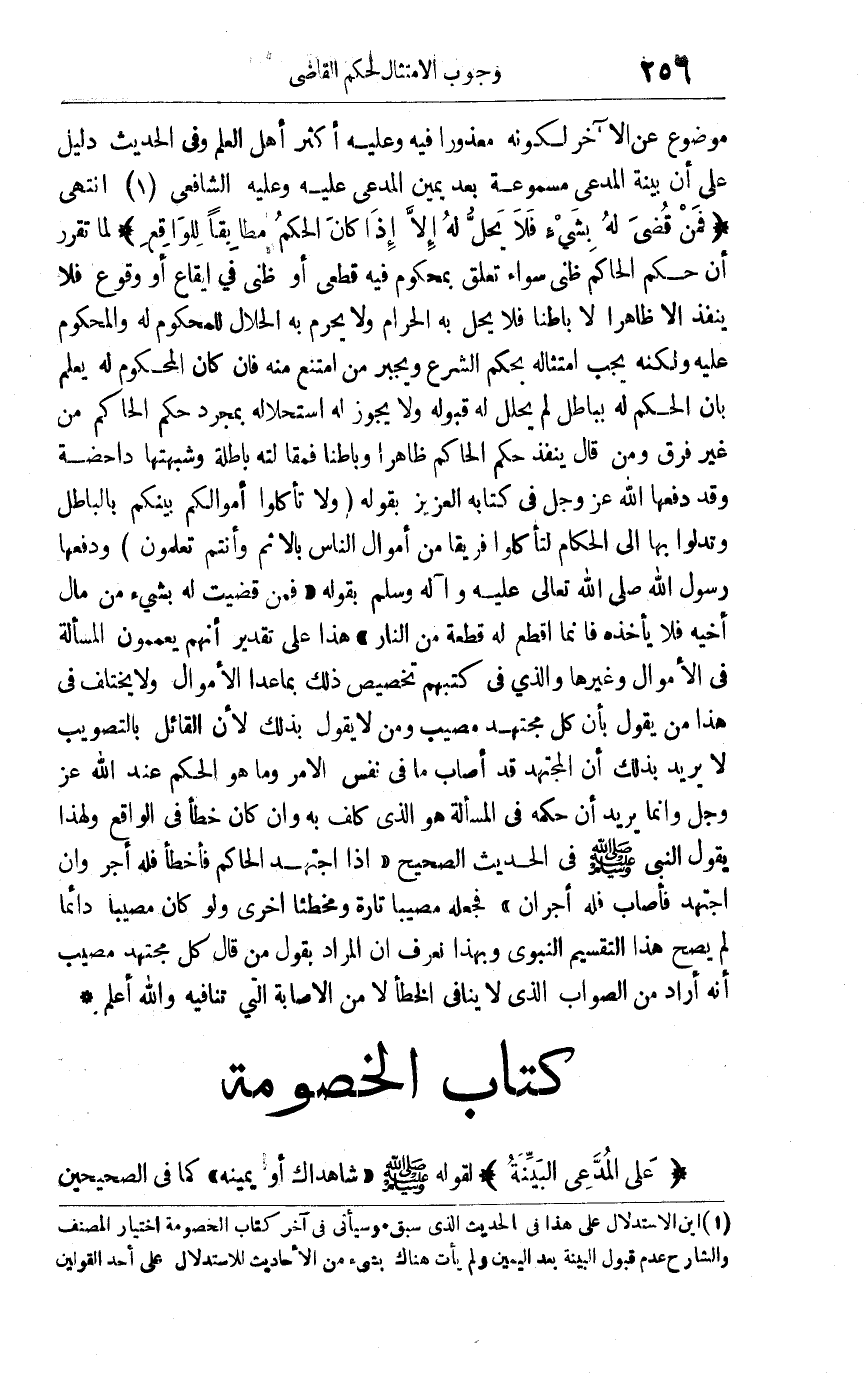 ٢٥٦ وجوب الامتثال لحكم القاضى
موضوع عن الآخر لكونه معذورا فيه وعليه أكثر أهل العلم وفى الحديث دليل
على أن بينة المدعى مسموعة بعد يمين المدعى عليه وعليه الشافعى (١) انتهى
﴿ فَمَنْ قُضِىَ لهُ بِشَيْءٍ فَلاَ يَحلُّ لهُ إِلاَّ إِذَا كانَ الحكمُ مطابِقاً لِلوَاقِعِ ﴾ لما تقرر
أن حكم الحاكم ظنى سواء تعلق بمحكوم فيه قطعى أو ظنى في ايقاع أو وقوع فلا
ينفذ الا ظاهرا لا باطنا فلا يحل به الحرام ولا يحرم به الحلال للمحكوم له والمحكوم
عليه ولكنه يجب امتثاله بحكم الشرع ويجبر من امتنع منه فان كان المحكوم له يعلم
بان الحكم له بباطل لم يحلل له قبوله ولا يجوز له استحلاله بمجرد حكم الحاكم من
غير فرق ومن قال ينفذ حكم الحاكم ظاهرا وباطنا فمقالته باطلة وشبهتها داحضة
وقد دفعها الله عز وجل فى كتابه العزيز بقوله ( ولا تأكلوا أموالكم بينكم بالباطل
وتدلوا بها الى الحكام لتأكلوا فريقا من أموال الناس بالاثم وأنتم تعلمون ) ودفعها
رسول الله صلى الله تعالى عليه وآله وسلم بقوله « فمن قضيت له بشيء من مال
أخيه فلا يأخذه فانما اقطع له قطعة من النار » هذا على تقدير أنهم يعممون المسألة
فى الأموال وغيرها والذي فى كتبهم تخصيص ذلك بماعدا الأموال ولايختلف فى
هذا من يقول بأن كل مجتهد مصيب ومن لايقول بذلك لأن القائل بالتصويب
لا يريد بذلك أن المجتهد قد أصاب ما فى نفس الامر وما هو الحكم عند الله عز
وجل وانما يريد أن حكمه فى المسألة هو الذى كلف به وان كان خطأ فى الواقع ولهذا
يقول النبي ﷺ فى الحديث الصحيح « اذا اجتهد الحاكم فأخطأ فله أجر وان
اجتهد فأصاب فله أجران » فجعله مصيبا تارة ومخطئا اخرى ولو كان مصيبا دائما
لم يصح هذا التقسيم النبوى وبهذا نعرف ان المراد بقول من قال كل مجتهد مصيب
أنه أراد من الصواب الذى لا ينافى الخطأ لا من الاصابة التى تنافيه والله أعلم *
كتاب الخصومة
﴿ عَلى المُدَّعِى البَيِّنَةُ ﴾ لقوله ﷺ « شاهداك أو يمينه » كما فى الصحيحين
(١) اين الاستدلال على هذا فى الحديث الذى سبق . وسيأتى فى آخر كتاب الخصومة اختيار المصنف
والشارح عدم قبول البينة بعد اليمين ولم يأت هناك بشىء من الأحاديث للاستدلال على أحد القولين